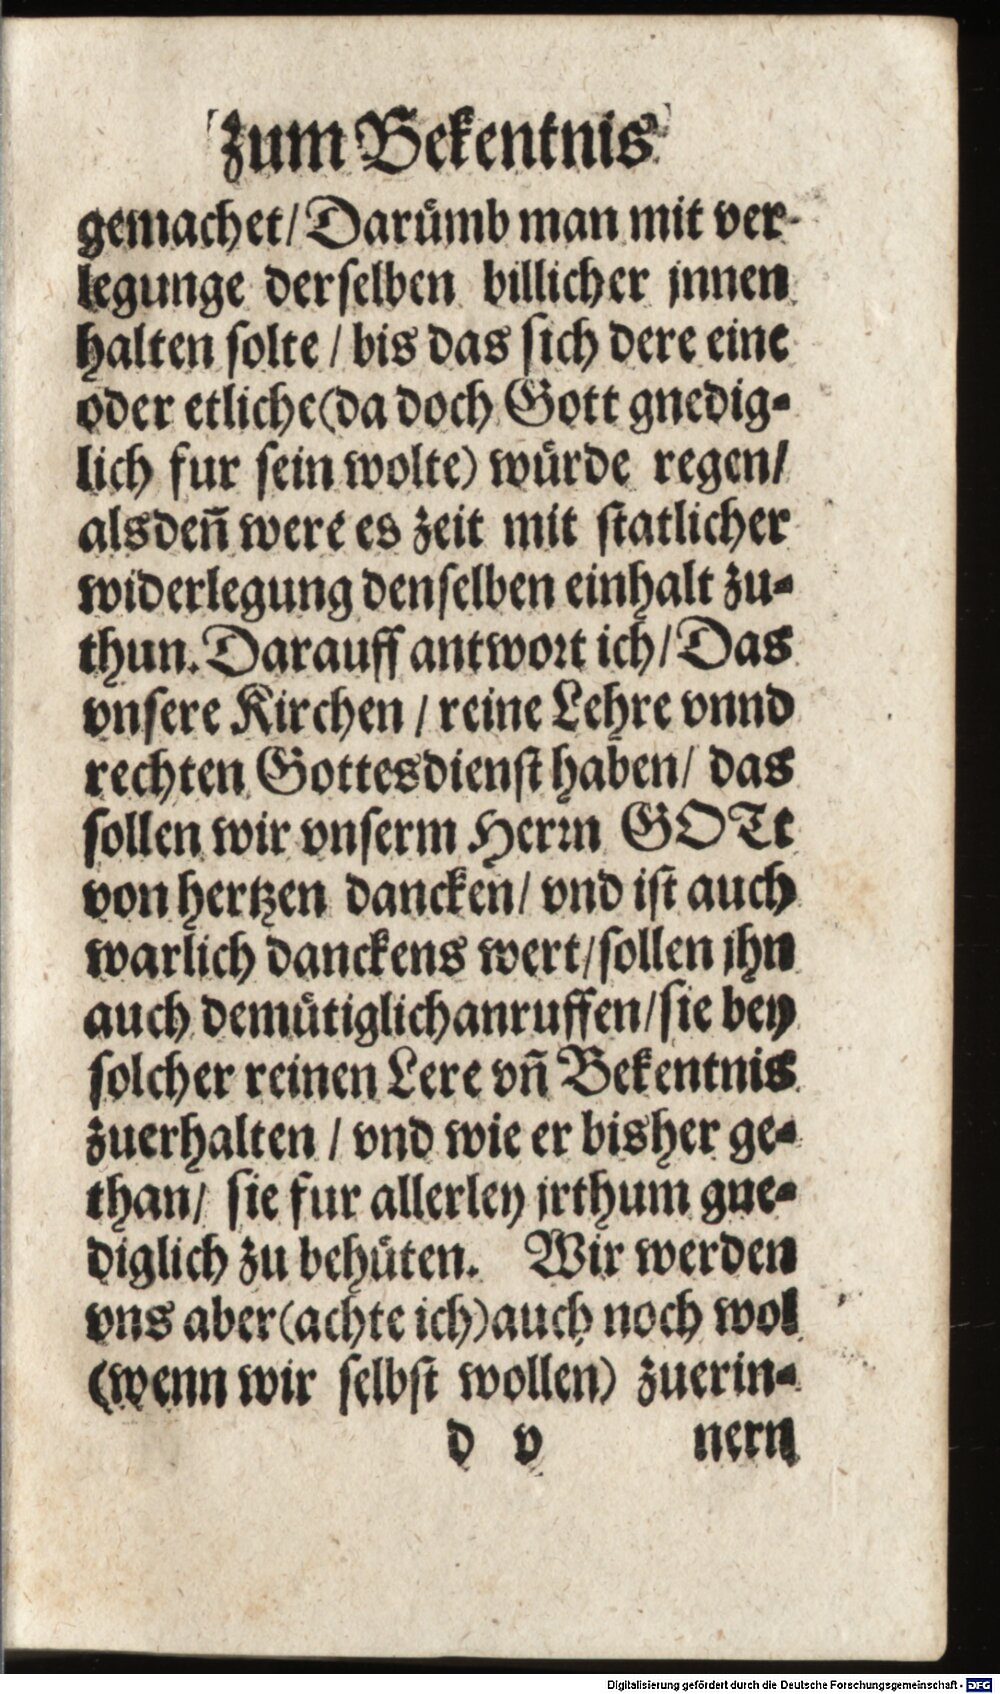 zum Bekentnis
gemachet/ Darümb man mit ver-
legunge derselben billicher jnnen
halten solte / bis das sich dere eine
oder etliche (da doch Gott gnedig-
lich fur sein wolte) würde regen/
alsdeñ were es zeit mit statlicher
widerlegung denselben einhalt zu-
thun. Darauff antwort ich/ Das
vnsere Kirchen / reine Lehre vnnd
rechten Gottesdienst haben/ das
sollen wir vnserm Herrn GOTt
von hertzen dancken/ vnd ist auch
warlich danckens wert/ sollen jhn
auch demütiglich anruffen/ sie bey
solcher reinen Lere vñ Bekentnis
zuerhalten / vnd wie er bisher ge-
than/ sie fur allerley jrthum gne-
diglich zu behüten. Wir werden
vns aber (achte ich) auch noch wol
(wenn wir selbst wollen) zuerin-
d v nern
Digitalisierung gefördert durch die Deutsche Forschungsgemeinschaft - DFG